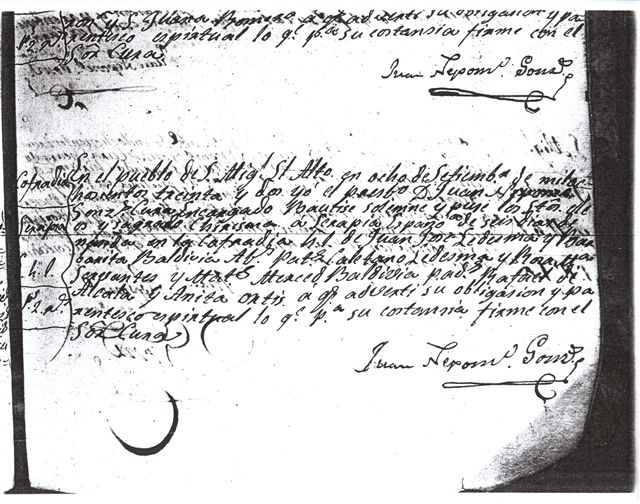 y S. Juana Romero a qs. adverti su obligasion y pa
rentesco espiritual lo qe. pa. su costansia firme con el
Sor. Cura
Juan Nepomo. Gonzs.
Cofradia
En el pueblo de S. Migl. El Alto en ocho de Setiembe. de mil o
chosientos treinta y dos yo el presbo. D. Juan Nepomo.
Gonz. Cura encargado Bautise solemne y puse los Stos. oleo
s y sagrado Chrisma á Serapia españa. de seis dias
en la Cofradia h. l. de Juan Jose Ledesma y
Baldivia Abs. Pats. Calletano Ledesma y
Servantes y Mats. Merced Baldivia pads. Rafael de
Alcala y Anita Ortis a qs. adverti su obligasion y pa
rentesco espiritual lo qe. pa. su costansia firme con el
Sor. Cura
h. l.
Juan Nepomo. Gonzs.